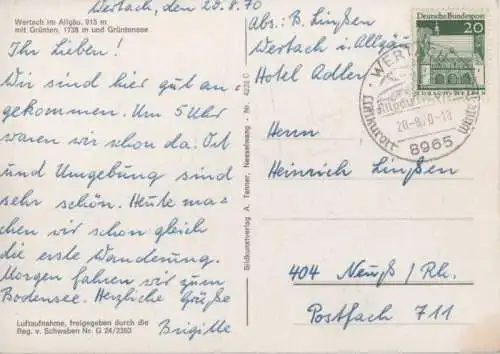 Wertach, den 20.8.70
Wertach im Allgäu, 915 m
mit Grünten, 1738 m und Grüntensee
Ihr Lieben!
Wir sind hier gut an-
gekommen. Um 5 Uhr
waren wir schon da. Ort
und Umgebung sind
sehr schön. Heute ma-
chen wir schon gleich
die erste Wanderung.
Morgen fahren wir zum
Bodensee. Herzliche Grüße
Brigitte
Luftaufnahme, freigegeben durch die
Reg. v. Schwaben Nr. G 24/2353
Bildkunstverlag A. Tanner, Nesselwang - Nr. 4233 C
Abs.: B. Linßen
Wertach i. Allgäu
Hotel Adler
Deutsche Bundespost
20
WERTACH
20-8.70-18
8965
Herrn
Heinrich Linßen
404 Neuß/Rh.
Postfach 711